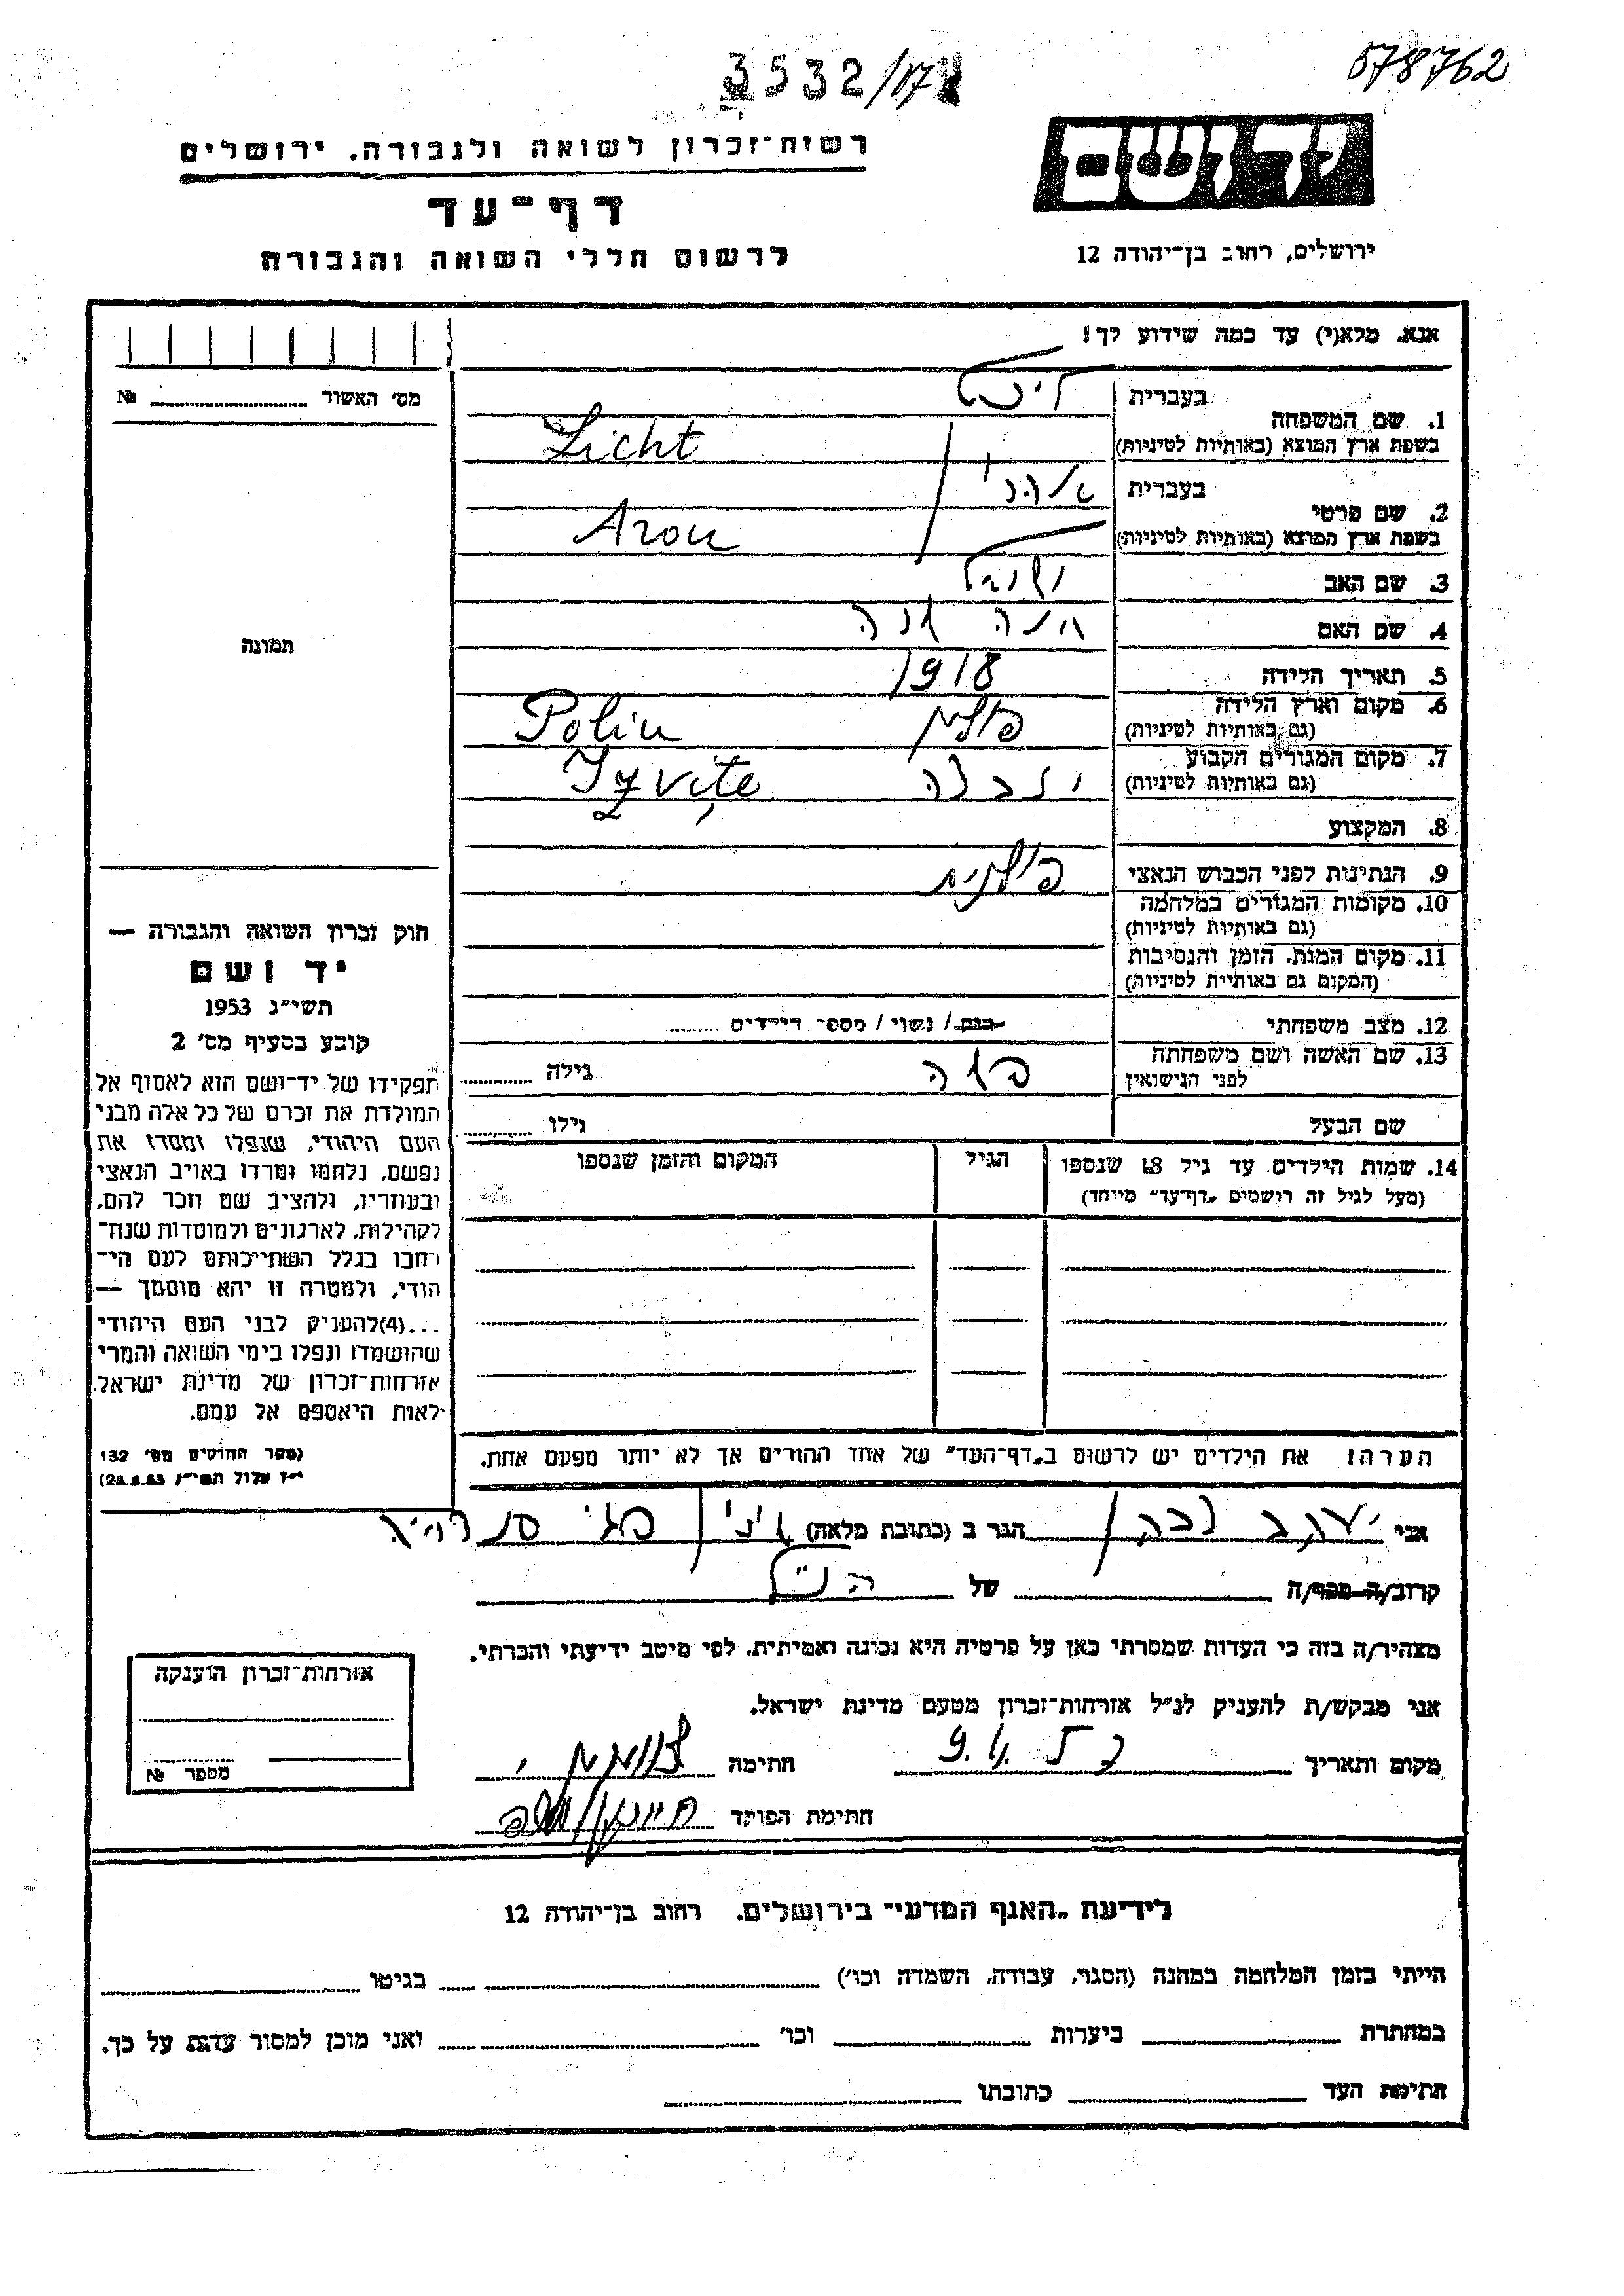 3532/
578762
יד ושם
רשות־זכרון לשואה ולגבורה. ירושלים
דף־עד
לרשום חללי השואה והגבורה
ירושלים, רחוב בן־יהודה 12
אנא, מלא(י) עד כמה שידוע לך!
מס׳ האשור №
1. שם המשפחה
בעברית ליכט
בשפת ארץ המוצא (באותיות לטיניות) Licht
2. שם פרטי
בעברית אהרן
בשפת ארץ המוצא (באותיות לטיניות) Aron
3. שם האב
4. שם האם חנה
5. תאריך הלידה 1918
6. מקום וארץ הלידה
(גם באותיות לטיניות) פולין Polin
7. מקום המגורים הקבוע
(גם באותיות לטיניות)
8. המקצוע
9. הנתינות לפני הכבוש הנאצי פולנית
10. מקומות המגורים במלחמה
(גם באותיות לטיניות)
11. מקום המות, הזמן והנסיבות
(המקום גם באותיית לטיניות)
12. מצב משפחתי רווק / נשוי / מספר הילדים
13. שם האשה ושם משפחתה
לפני הנישואין גילה
שם הבעל גילו
14. שמות הילדים עד גיל 18 שנספו
(מעל לגיל זה רושמים „דף־עד״ מייחד)
הגיל
המקום והזמן שנספו
תמונה
חוק זכרון השואה והגבורה —
יד ושם
תשי״ג 1953
קובע בסעיף מס׳ 2
תפקידו של יד־ושם הוא לאסוף אל
המולדת את זכרם של כל אלה מבני
העם היהודי, שנפלו ומסרו את
נפשם, נלחמו ומרדו באויב הנאצי
ובעוזריו, ולהציב שם וזכר להם,
לקהילות, לארגונים ולמוסדות שנח־
רחבו בגלל השתייכותם לעם הי־
הודי, ולמטרה זו יהא מוסמך —
...(4)להעניק לבני העם היהודי
שהושמדו ונפלו בימי השואה והמרי
אזרחות־זכרון של מדינת ישראל,
לאות היאספם אל עמם.
(ספר החוקים מס׳ 132
י״ז אלול תשי״ג 28.8.53)
הערה: את הילדים יש לרשום ב„דף־העד״ של אחד ההורים אך לא יותר מפעם אחת.
אני יעקב הגר ב (כתובת מלאה)
קרוב/ה מכר/ה של הנ״ל
מצהיר/ה בזה כי העדות שמסרתי כאן על פרטיה היא נכונה ואמיתית, לפי מיטב ידיעתי והכרתי.
אני מבקש/ת להעניק לנ״ל אזרחות־זכרון מטעם מדינת ישראל.
מקום ותאריך חתימה
חתימת הפוקד
אזרחות־זכרון הוענקה
מספר №
לידיעת „האגף המדעי״ בירושלים, רחוב בן־יהודה 12
הייתי בזמן המלחמה במחנה (הסגר, עבודה, השמדה וכו׳) בגיטו
במחתרת ביערות וכו׳ ואני מוכן למסור עדות על כך.
חתימת העד כתובתו